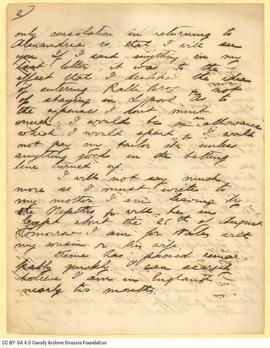 2)
only consolation in returning to
Alexandria is that I will see
you. If I said anything in my
last letter it was to the
effect that I the idea
of entering Ralli Bros & not
of staying in L'pool. As to
the expenses I don't mind
much. I would be on allowance
which I would spend & I would
not pay my tailor etc unless
anything good in the betting
line turned up.
I will not say much
more as I must write to
my mother. I am leaving by
the & will be in
Egypt above the 25th of August
Tomorrow I am for Wales with
my cousin & his wife.
Time has passed remar-
kably quickly. I can scarcely
believe I am in England
nearly two months.
CC BY-SA 4.0 Cavafy Archive Onassis Foundation